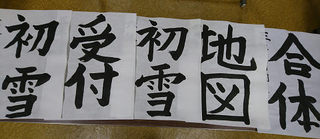 初雪
受付
初雪
地図
合体